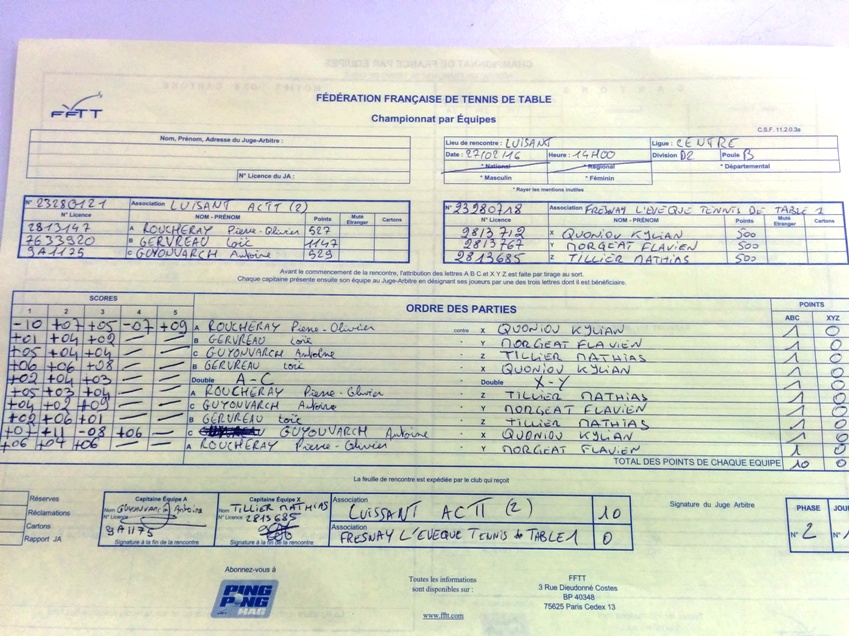 FFTT
FÉDÉRATION FRANÇAISE DE TENNIS DE TABLE
Championnat par Équipes
C.S.F. 11.2.0.3a
Nom, Prénom, Adresse du Juge-Arbitre :
N° Licence du JA :
Lieu de rencontre : LUISANT Ligue : CENTRE
Date : 27/02/16 Heure : 14H00 Division D2 Poule B
* National * Régional * Départemental
* Masculin * Féminin
* Rayer les mentions inutiles
N° 23280121 Association LUISANT ACTT (2)
N° Licence NOM - PRÉNOM Points Muté Etranger Cartons
2813147 A ROUCHERAY Pierre-Olivier 527
7633920 B GERVREAU Loïc 1147
9A1175 C GUYONVARCH Antoine 529
N° 23980718 Association FRESNAY L'EVEQUE TENNIS DE TABLE 1
N° Licence NOM - PRÉNOM Points Muté Etranger Cartons
9813712 X QUONIOU KYLIAN 500
2813767 Y MORGEAT FLAVIEN 500
2813685 Z TILLIER MATHIAS 500
Avant le commencement de la rencontre, l'attribution des lettres A B C et X Y Z est faite par tirage au sort.
Chaque capitaine présente ensuite son équipe au Juge-Arbitre en désignant ses joueurs par une des trois lettres dont il est bénéficiaire.
SCORES ORDRE DES PARTIES POINTS
1 2 3 4 5 ABC XYZ
-10 +07 +05 -07 +09 A ROUCHERAY Pierre-Olivier contre X QUONIOU KYLIAN 1 0
+01 +04 +02 — — B GERVREAU Loïc - Y MORGEAT FLAVIEN 1 0
+05 +04 +04 — — C GUYONVARCH Antoine - Z TILLIER MATHIAS 1 0
+06 +06 +08 — — B GERVREAU Loïc - X QUONIOU KYLIAN 1 0
+02 +04 +03 — — Double A-C - Double X-Y 1 0
+05 +03 +04 — — A ROUCHERAY Pierre-Olivier - Z TILLIER MATHIAS 1 0
+04 +02 +09 — — C GUYONVARCH Antoine - Y MORGEAT FLAVIEN 1 0
+02 +06 +01 — — B GERVREAU Loïc - Z TILLIER MATHIAS 1 0
+11 -08 +06 — C GUYOUVARCH Antoine - X QUONIOU KYLIAN 1 0
+06 +04 +06 — — A ROUCHERAY Pierre-Olivier - Y MORGEAT FLAVIEN 1 0
TOTAL DES POINTS DE CHAQUE EQUIPE 10 0
La feuille de rencontre est expédiée par le club qui reçoit
Réserves
Réclamations
Cartons
Rapport JA
Capitaine Équipe A
Nom GUYONVARCH Antoine
N° Licence
9A1175
Signature à la fin de la rencontre
Capitaine Équipe X
Nom TILLIER MATHIAS
N° Licence 2813685
Signature à la fin de la rencontre
Association LUISSANT ACTT (2) 10
Association FRESNAY L'EVEQUE TENNIS de TABLE 1 0
Signature du Juge Arbitre
PHASE
N° 2
Abonnez-vous à
PING PONG MAG
Toutes les informations
sont disponibles sur :
www.fftt.com
FFTT
3 Rue Dieudonné Costes
BP 40348
75625 Paris Cedex 13